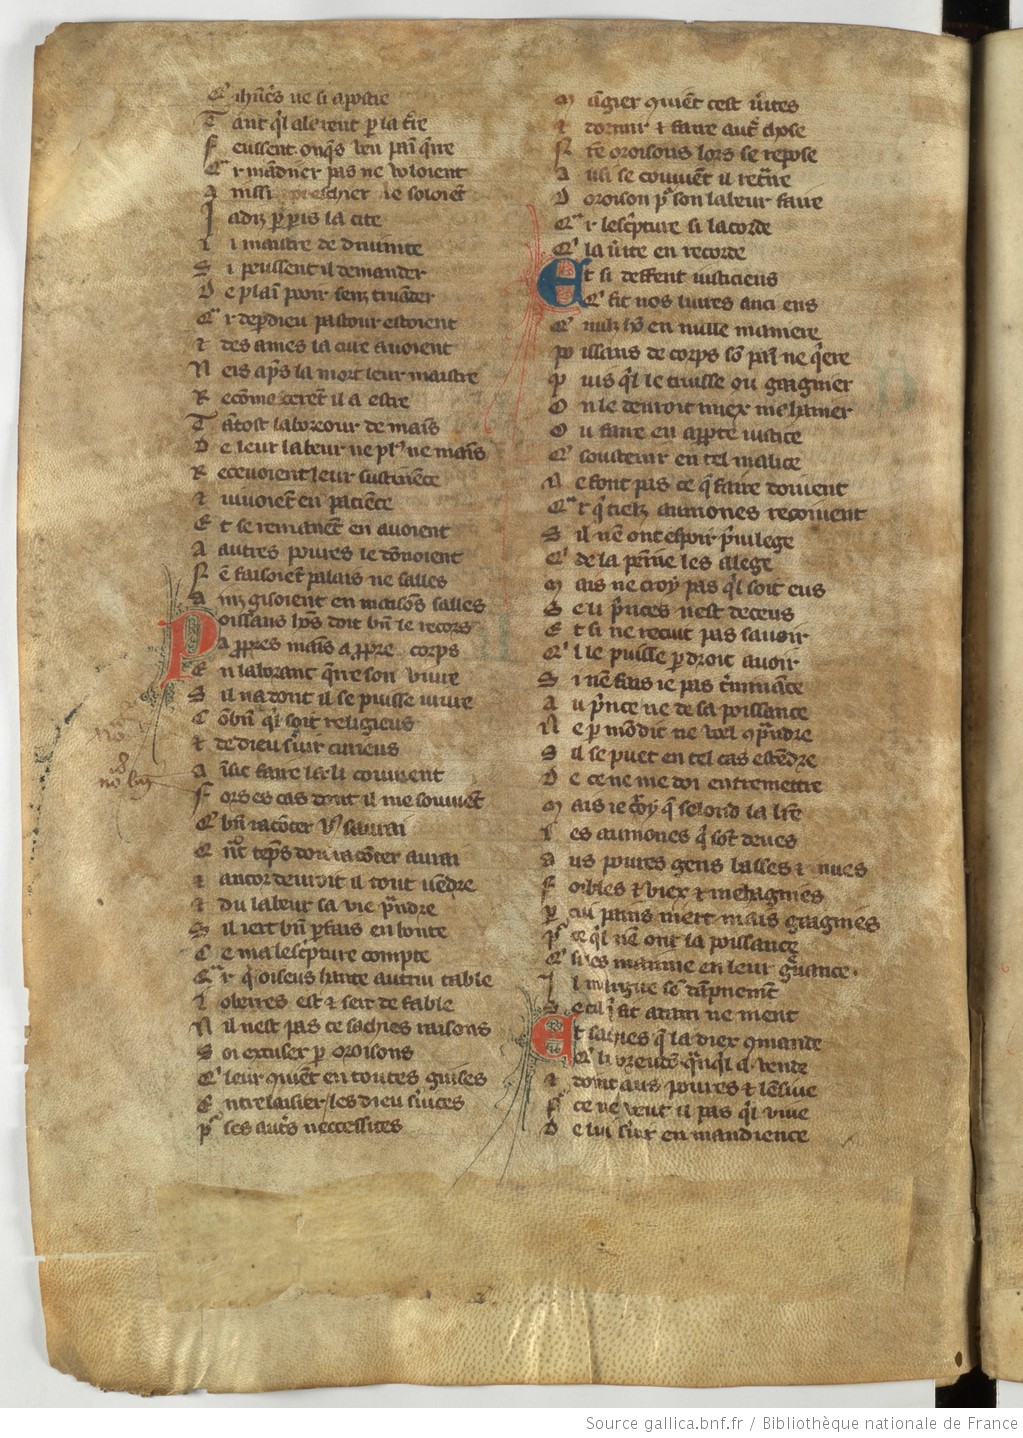 Q' ihũcs ne si apostre
T ant q'l alerent p la t're
F eussent onq̃s leu pai q̃re
C ar mãdner pas ne voloient
A nissi preeschier le soloiẽt
J adiz p pis la cite
L i maistre de divinite
S i peussent il demander
D e plai pooir senz truãder
C ar de p dieu pastour estoient
Et des ames la cure avoient
N eis ap̃s la mort leur maistre
R ecõmencerẽt il a estre
T ãtost laboreour de mais
D e leur labeur ne pl' ne mais
R ecevoient leur sustenẽce
Et vivoiẽt en paciẽce
E t se remanẽt en avoient
A autres povres le dõnoient
N ẽ faisoiẽt palais ne salles
A inz gisoient en maisõs salles
P oissans hõs doit bñ le recors
A ppres mais a ppre corps
E n laborant q̃re son vivre
S il na dont il se puisse vivre
C õbñ q'l soit religieus
Et de dieu s'vir curieus
A insic faire le li couvient
F ors es cas dont il me souviẽt
Q' bñ racõter v' savrai
Q nt tẽps dou racõter avrai
Et ancor devroit il tout vẽdre
Et du labeur sa vie p̃ndre
S il iert bñ pfais en bonte
C e ma lescpture compte
C ar q' oiseus hante autrui table
L obierres est & sert de fable
N il nest pas ce sachies raisons
S oi excuser p oroisons
Q' leur 9uiẽt en toutes guises
E ntrelaisier les dieu s'vices
P' ses aut's neccessites
M ãgier 9uiẽt cest v'ites
Et dormir & faire aut' chose
N re oroisons lors se repose
A usi se couviẽt il ret're
D oroison p' son labeur faire
C ar lesc'pture si lacorde
Q' la v'ite en recorde
E t si deffent iusticiens
Q' fit nos livres anciens
Q' nulz hõ en nulle maniere
Po issans de corps sõ pai ne q'ere
P uis q'l le truisse ou gaagnier
O n le devroit miex mehanier
O u faire en apperte iustice
Q' soustenir en tel malice
N e font pas ce q' faire doivent
C ar q' tielz aumones reçoivent
S il nẽ ont espoir p'vilege
Q' de la peine les alege
M ais ne croy pas q'l soit eus
S e li p'nces nest deceus
E t si ne recuit pas savoir
Q' l le puisse p droit avoir
S i nẽ fais ie pas t'minãce
A u p'nce ne de sa poissance
N e p mõ dit ne voel 9p'ndre
S il se puet en tel cas estẽdre
D e ce ne me doi entremettre
M ais ie croy q' selonc la lr̃e
L es aumones q' sõt deues
A us povres gens lasses & nues
F oibles & viex & mehagnies
P cui pains niert mais gaagnies
P' ce q'l nẽ ont la poissance
Q' si les maniue en leur g'vance
I l maniue sõ dãpnemẽt
S e cil q' fit adam ne ment
E t sachies q' la diex 9mande
Q' li preudõ quãq'l a vende
Et doint aus povres & le sive
P' ce ne veut il pas q'l vive
D e lui s'vir en mandience